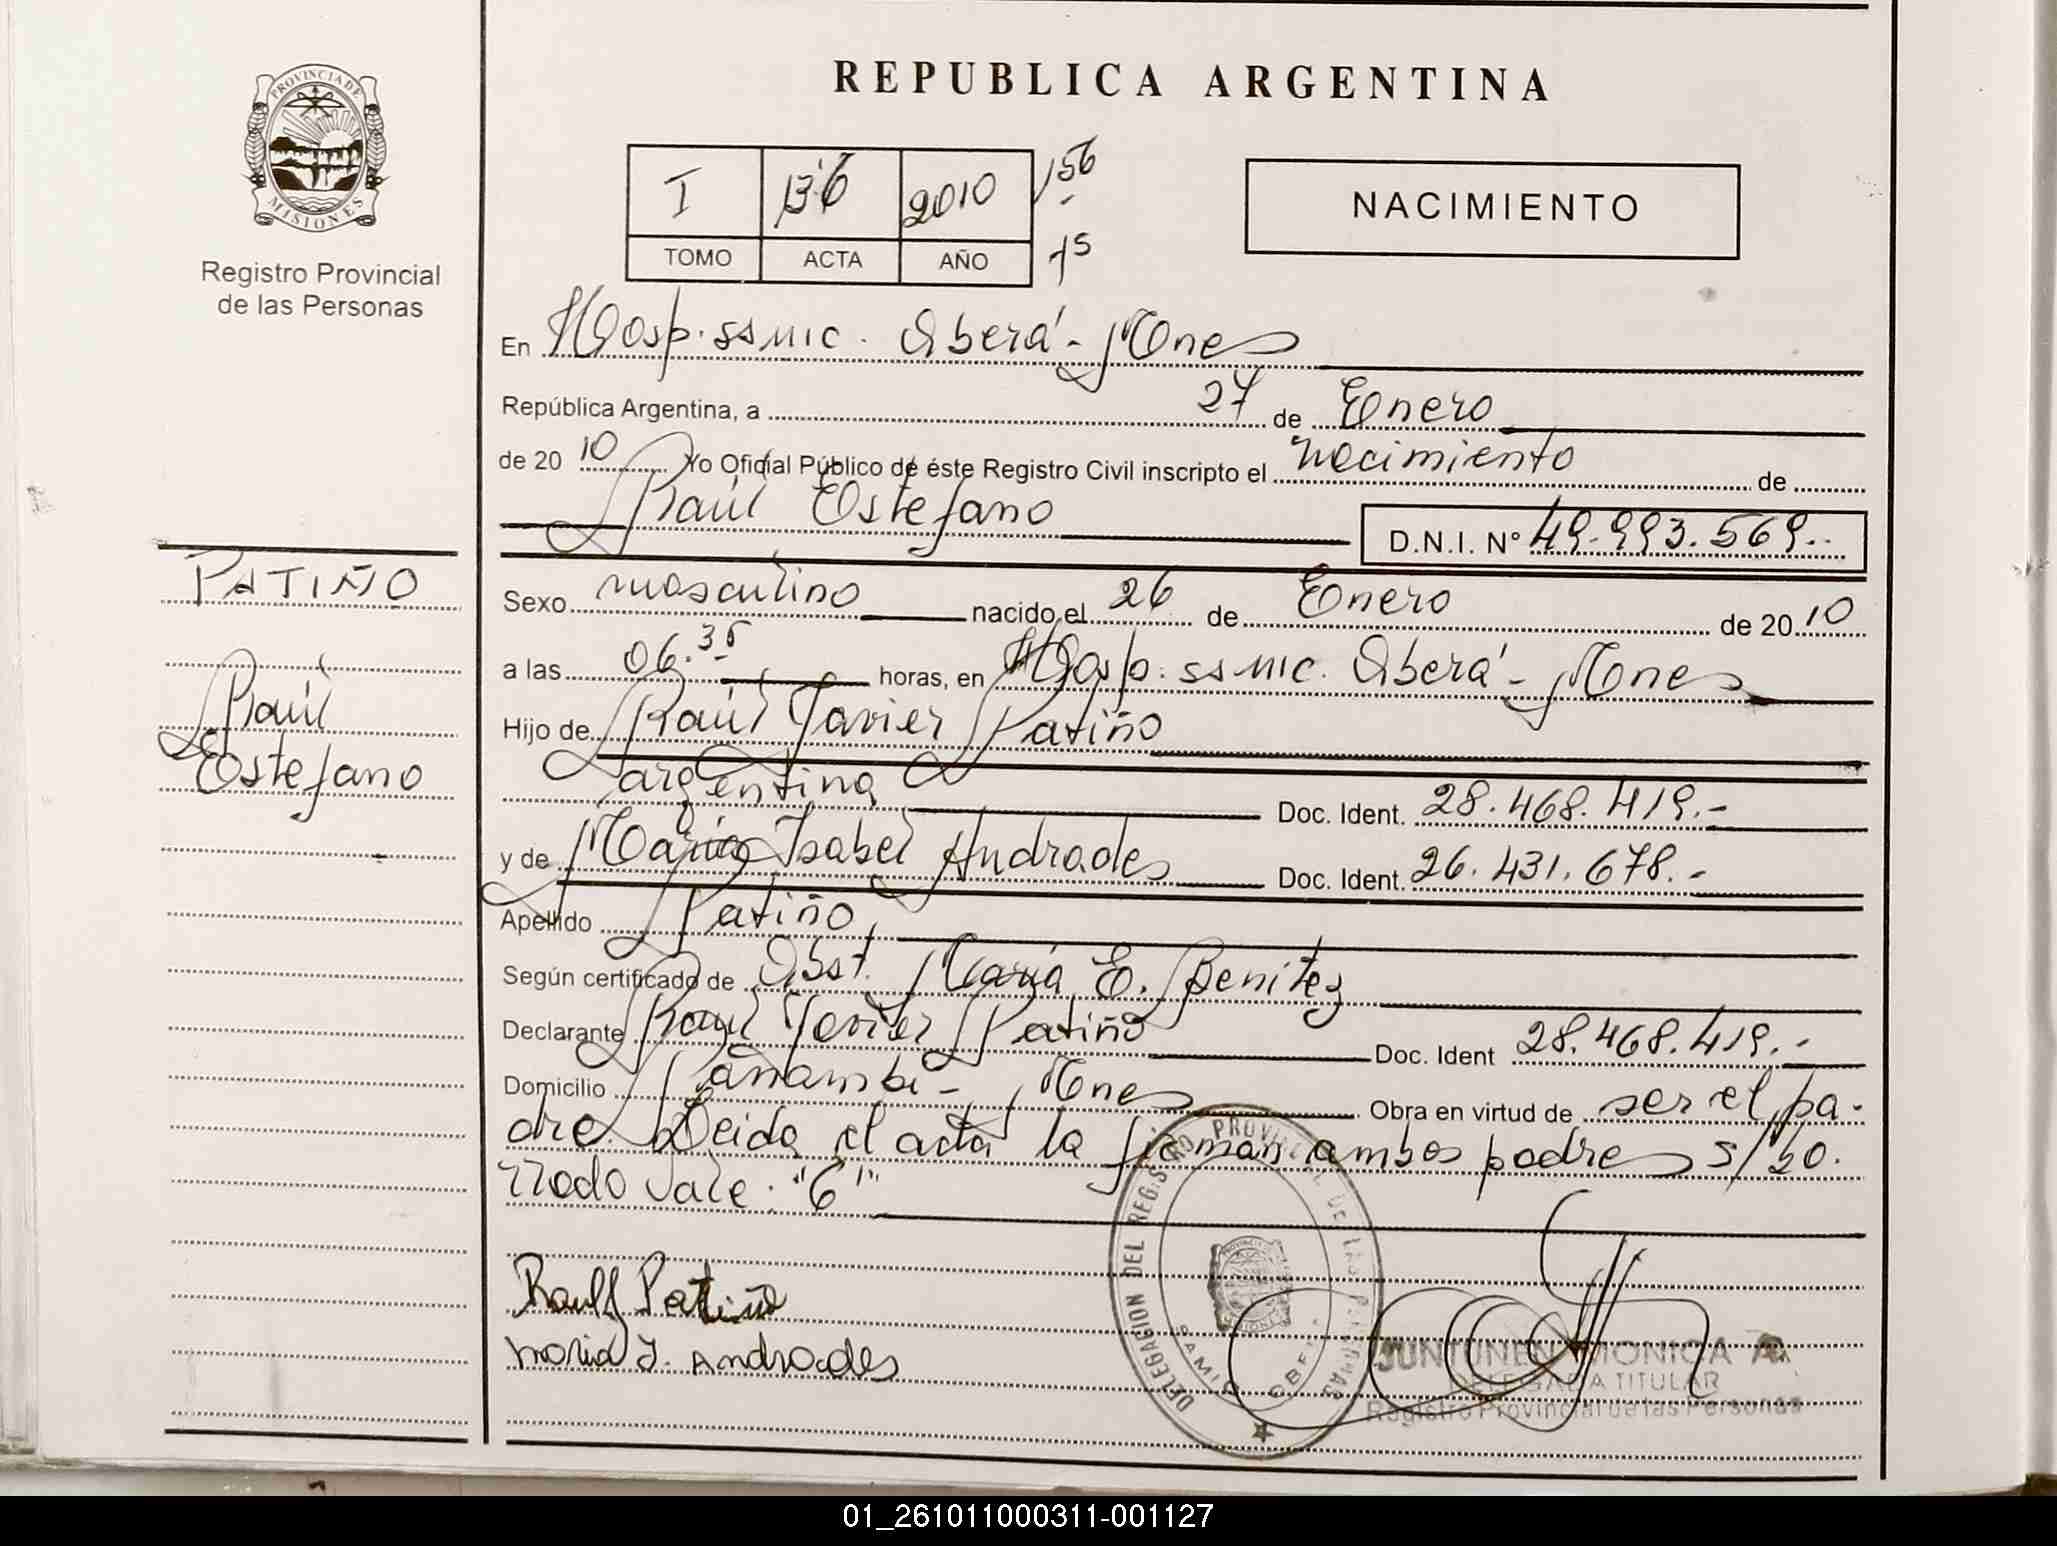 REPUBLICA ARGENTINA
PROVINCIA DE
MISIONES
Registro Provincial
de las Personas
I 136 2010 156
TOMO ACTA AÑO 75
NACIMIENTO
En Hosp. ssmic. Oberá - Mnes
República Argentina, a 27 de Enero
de 2010 Yo Oficial Público de éste Registro Civil inscripto el nacimiento de
Raúl Estefano D.N.I. Nº 49.993.569..
PATIÑO
Raúl
Estefano
Sexo masculino nacido el 26 de Enero de 2010
a las 06.35 horas, en Hosp. ssmic. Oberá - Mnes
Hijo de Raúl Javier Patiño
argentina Doc. Ident. 28.468.419.-
y de María Isabel Andrades Doc. Ident. 26.431.678.-
Apellido Patiño
Según certificado de Obst. María E. Benitez
Declarante Raúl Javier Patiño Doc. Ident 28.468.419.-
Domicilio Panambí - Mnes Obra en virtud de ser el pa-
dre. Leida el acta la firman ambos padres s/bo.
rrado vale. "6"
Raul J Patiño
Maria I. Andrades
DELEGACION DEL REGISTRO PROVINCIAL DE LAS PERSONAS
JUNTUNEN MONICA A.
DELEGADA TITULAR
Registro Provincial de las Personas
01_261011000311-001127